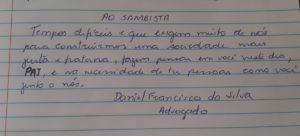 AO SAMBISTA
Tempos difíceis e que exigem muito de nós
para construirmos uma sociedade mais
justa e fraterna, fazem pensar em você neste dia,
PAI, e na necessidade de ter pessoas como você
junto a nós.
Daniel Francisco da Silva
Advogado